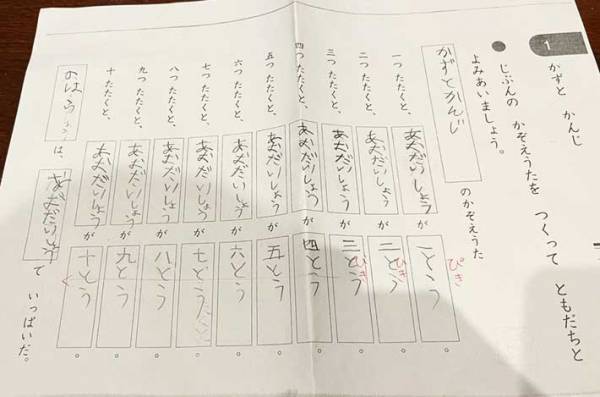 1
かずと かんじ
● じぶんの かぞえうたを つくって ともだちと
よみあいましょう。
かずとかんじ のかぞえうた
一つ たたくと、 あおだいしょう が 一とう。 ぴき
二つ たたくと、 あおだいしょう が 二とう。 ひき
三つ たたくと、 あおだいしょう が 三とう。
四つ たたくと、 あおだいしょう が 四とう。
五つ たたくと、 あおだいしょう が 五とう。
六つ たたくと、 あおだいしょう が 六とう。
七つ たたくと、 あおだいしょう が 七とう。
八つ たたくと、 あおだいしょう が 八とう。
九つ たたくと、 あおだいしょう が 九とう。
十 たたくと、 あおだいしょう が 十とう。
のはら は、 あおだいしょう で いっぱいだ。